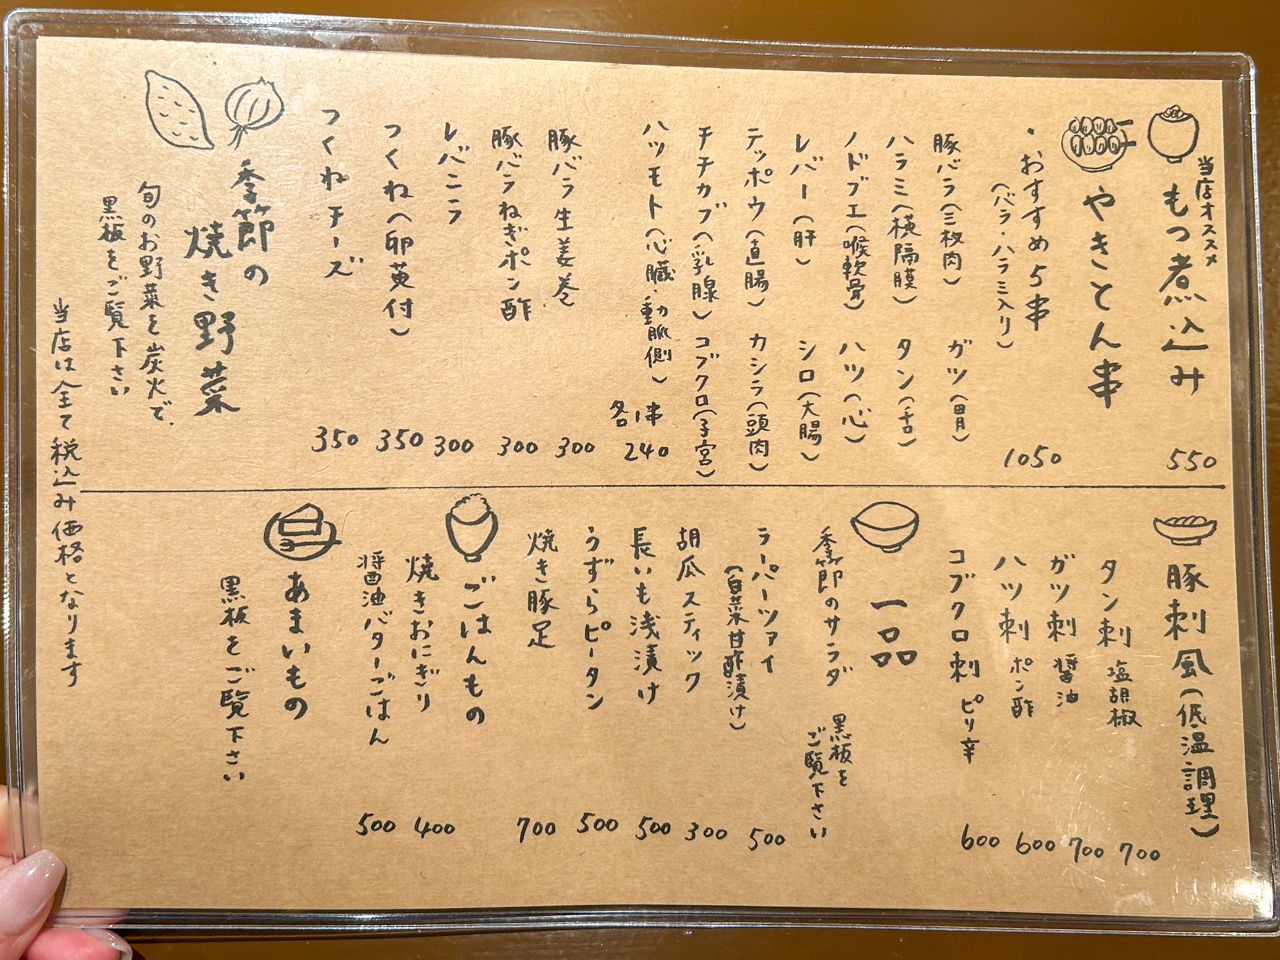 当店オススメ
もつ煮込み 550
やきとん串
・おすすめ5串 1050
(バラ・ハラミ入り)
豚バラ(三枚肉) ガツ(胃)
ハラミ(横隔膜) タン(舌)
ノドブエ(喉軟骨) ハツ(心)
レバー(肝) シロ(大腸)
テッポウ(直腸) カシラ(頭肉)
チチカブ(乳腺) コブクロ(子宮)
ハツモト(心臓・動脈側) 各1串 240
豚バラ生姜巻 300
豚バラねぎポン酢 300
レバニラ 300
つくね(卵黄付) 350
つくねチーズ 350
季節の
焼き野菜
旬のお野菜を炭火で.
黒板をご覧下さい
当店は全て税込み価格となります
豚刺風(低温調理)
タン刺 塩胡椒 700
ガツ刺 醤油 700
ハツ刺 ポン酢 600
コブクロ刺 ピリ辛 600
一品
季節のサラダ 黒板を
ご覧下さい
ラーパーツァイ 500
(白菜甘酢漬け)
胡瓜スティック 300
長いも浅漬け 500
うずらピータン 500
焼き豚足 700
ごはんもの
焼きおにぎり 400
醤油バターごはん 500
あまいもの
黒板をご覧下さい